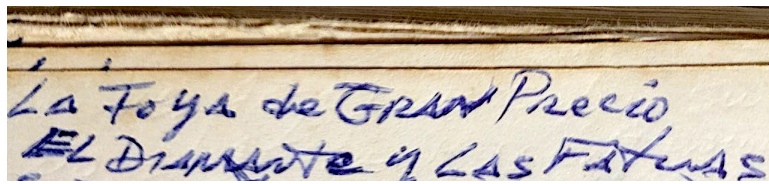 La Joya de GRAN Precio
EL DIAMANTE y LAS FATUAS